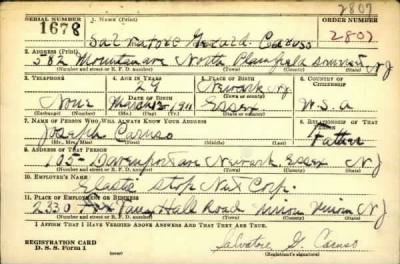 2807
SERIAL NUMBER 1. Name (Print) ORDER NUMBER
1678 Salvatore Gerard Caruso 2807
2. ADDRESS (Print)
582 Mountain ave North Plainfield Somerset N J
(Number and street or R. F. D. number) (Town) (County) (State)
3. TELEPHONE 4. AGE IN YEARS 5. PLACE OF BIRTH 6. COUNTRY OF CITIZENSHIP
Newark NJ
None March 1911 Essex U.S.A
(Exchange) (Number) (Mo.) (Day) (Yr.) (State or country)
7. NAME OF PERSON WHO WILL ALWAYS KNOW YOUR ADDRESS 8. RELATIONSHIP OF THAT PERSON
Joseph Caruso Father
(Mr., Mrs., Miss) (First) (Middle) (Last)
9. ADDRESS OF THAT PERSON
105 Davenport ave Newark Essex N J
(Number and street or R. F. D. number) (Town) (County) (State)
10. EMPLOYER'S NAME
Elastic Stop Nut Corp.
11. PLACE OF EMPLOYMENT OR BUSINESS
2330 Vaux Hall Road Union Union N J
(Number and street or R. F. D. number) (Town) (County) (State)
I AFFIRM THAT I HAVE VERIFIED ABOVE ANSWERS AND THAT THEY ARE TRUE.
REGISTRATION CARD
D. S. S. Form 1
Salvatore G. Caruso
(Registrant's signature)